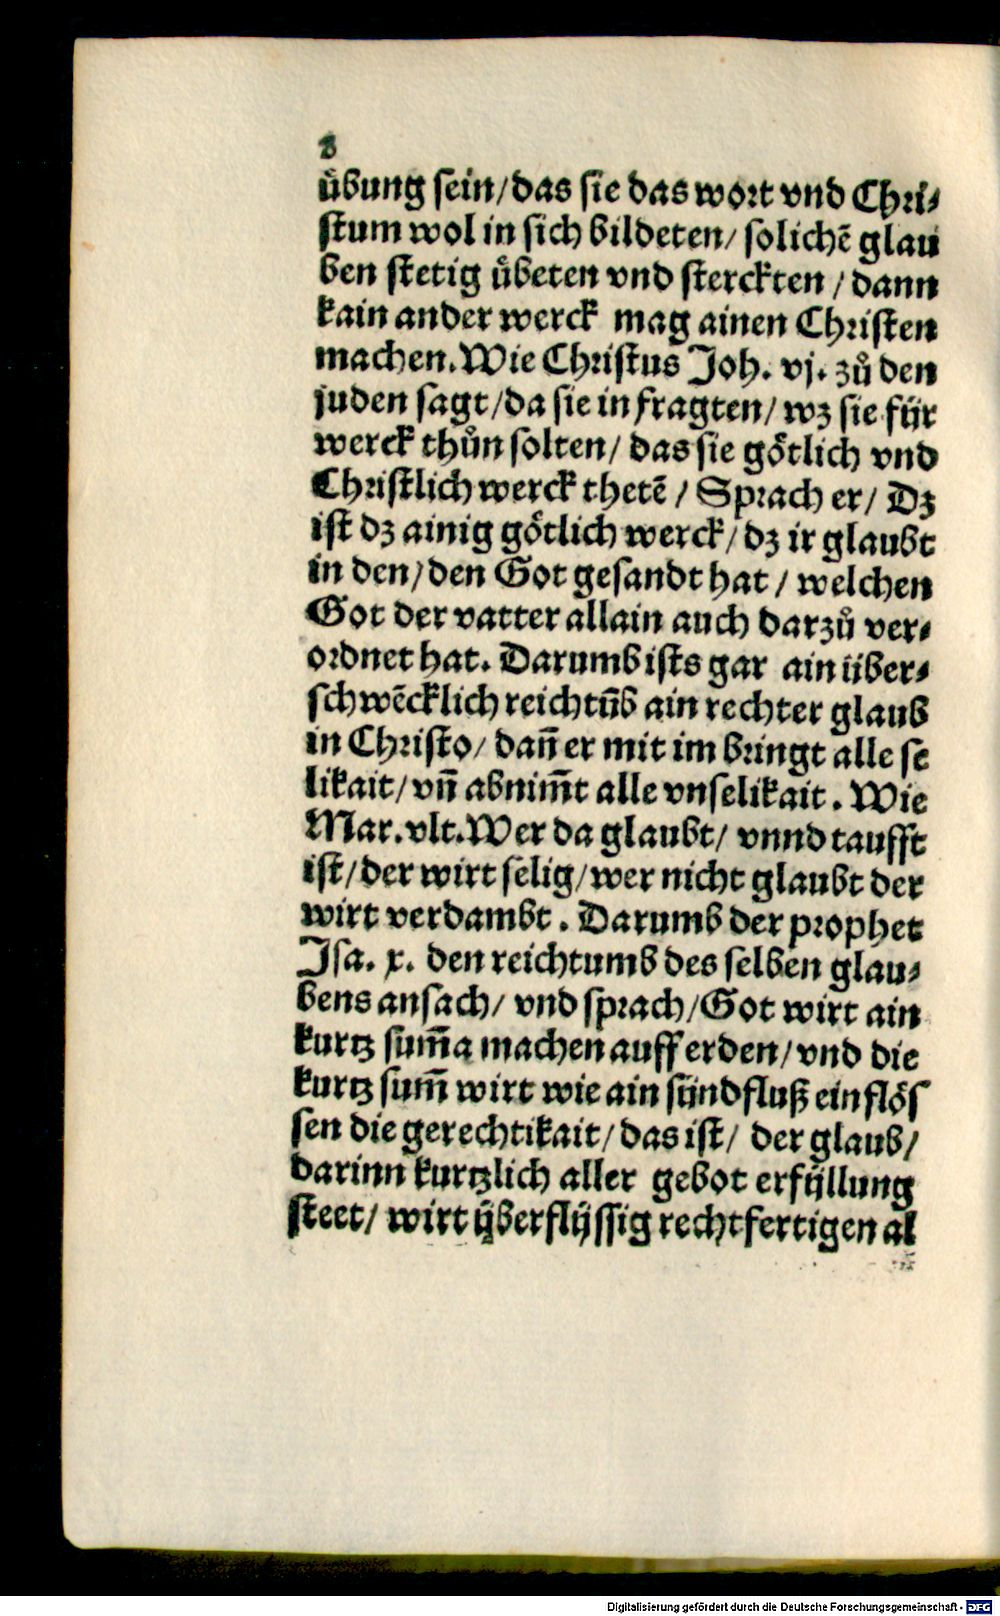 8
uͤbung sein/das sie das wort vnd Chri⸗
stum wol in sich bildeten/ solichē glau
ben stetig uͤbeten vnd sterckten / dann
kain ander werck mag ainen Christen
machen. Wie Christus Joh. vj. zuͦ den
juden sagt/da sie in fragten/ wz sie für
werck thuͦn solten/ das sie goͤtlich vnd
Christlich werck thetē / Sprach er/ Dz
ist dz ainig goͤtlich werck/ dz ir glaubt
in den/den Got gesandt hat / welchen
Got der vatter allain auch darzuͦ ver⸗
ordnet hat. Darumb ists gar ain über⸗
schwēcklich reichtūb ain rechter glaub
in Christo/ dañ er mit im bringt alle se
likait/ vñ abnim̄t alle vnselikait. Wie
Mar. vlt. Wer da glaubt/ vnnd taufft
ist/der wirt selig/wer nicht glaubt der
wirt verdambt. Darumb der prophet
Isa. x. den reichtumb des selben glau⸗
bens ansach/ vnd sprach/Got wirt ain
kurtz sum̄a machen auff erden/vnd die
kurtz sum̄ wirt wie ain sündfluß einfloͤs
sen die gerechtikait/das ist/ der glaub/
darinn kurtzlich aller gebot erfÿllung
steet/ wirt ÿberflÿssig rechtfertigen al
Digitalisierung gefördert durch die Deutsche Forschungsgemeinschaft - DFG